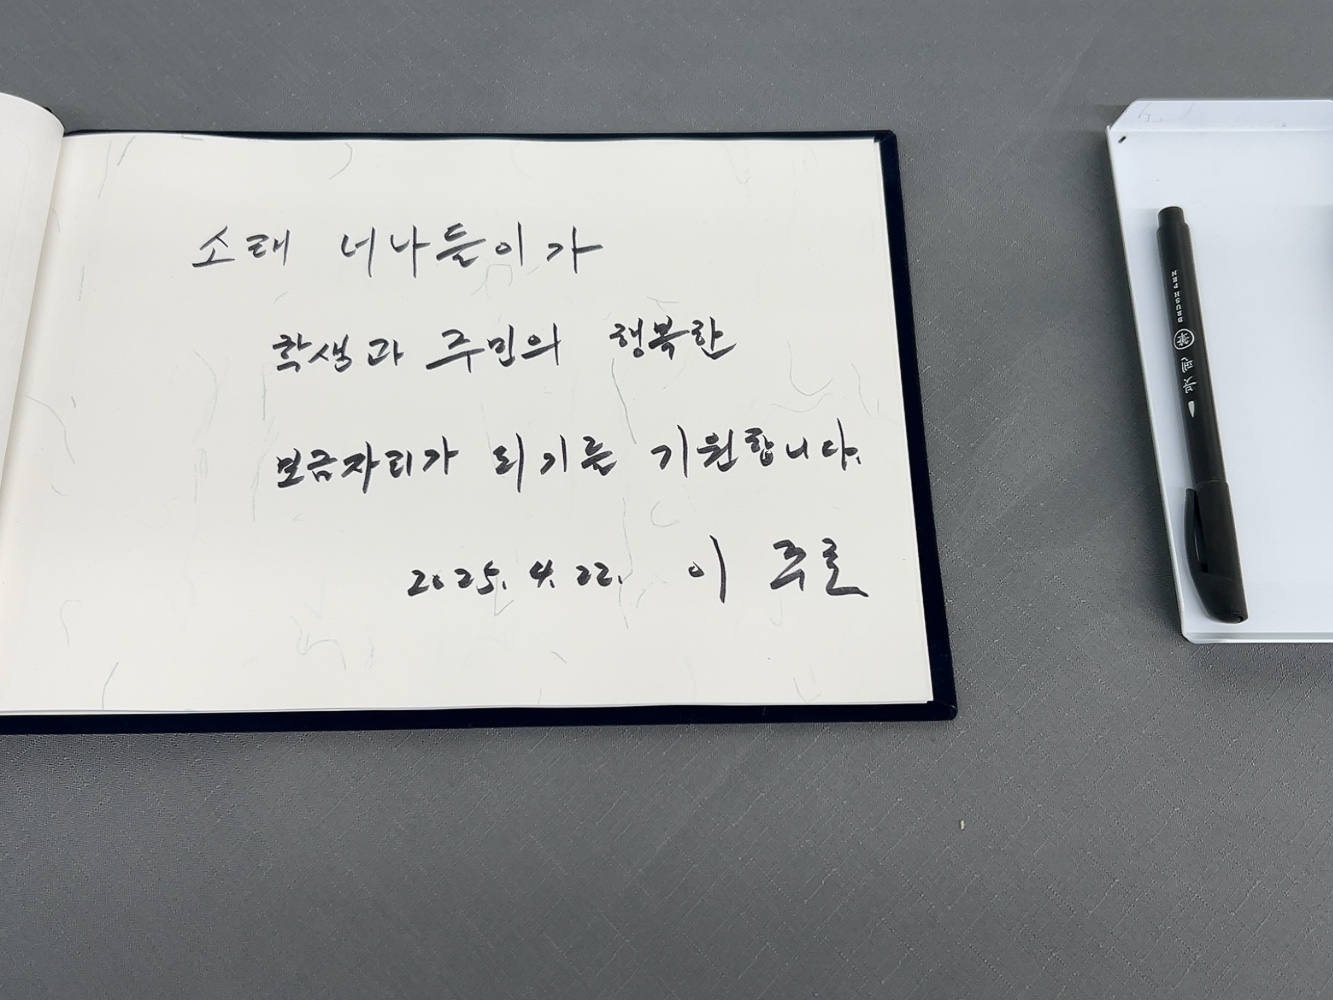 소래 너나들이가
학생과 주민의 행복한
보금자리가 되기를 기원합니다.
2025. 4. 22. 이 주호